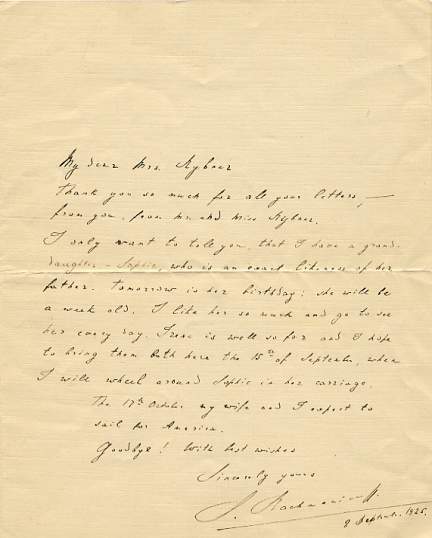 My dear Mrs. Rybner
Thank you so much for all your letters,—
from you, from Mr. and Miss Rybner.
I only want to tell you, that I have a grand-
daughter – Sophie, who is an exact likeness of her
father. Tomorrow is her birthday: she will be
a week old. I like her so much and go to see
her every day. Irene is well so far and I hope
to bring them both here the 15th of September, when
I will wheel around Sophie in her carriage.
The 17th October my wife and I expect to
sail for America.
Goodbye! With best wishes
Sincerely yours
S. Rachmaninoff.
8 September. 1925.